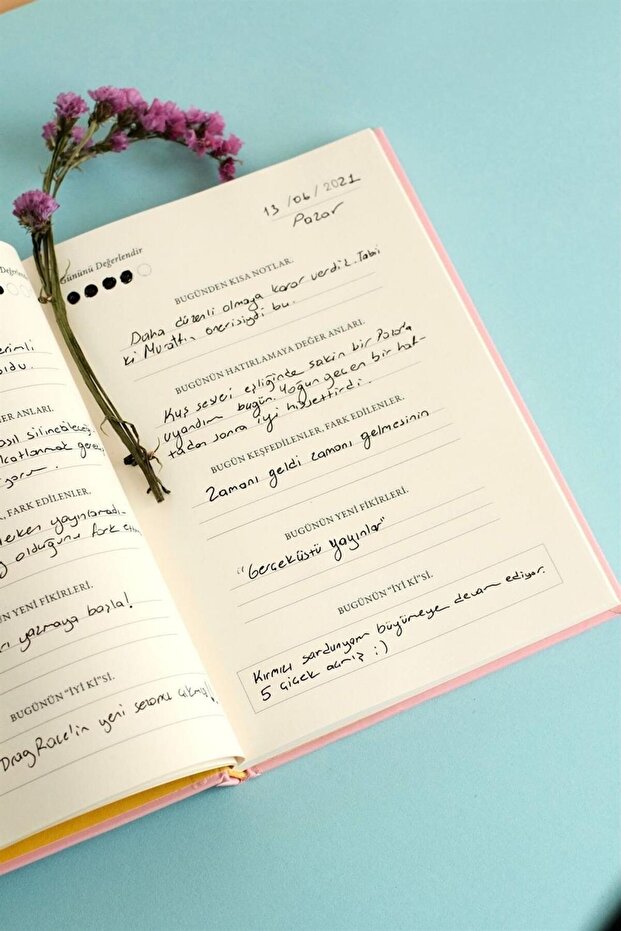 Değerlendir
erimli
oldu.
ER ANLARI.
nasıl silineceğ
, FARK EDİLENLER.
yayınlamadı
olduğunu fark ettim
ÜN YENİ FİKİRLERİ.
yazmaya başla!
BUGÜNÜN "İYİ Kİ"Sİ.
Drag Race'in yeni sezonu çıkmış!
13/06/2021
Pazar
Gününü Değerlendir
BUGÜNDEN KISA NOTLAR.
Daha düzenli olmaya karar verdik. Tabii
ki Murat'ın önerisiydi bu.
BUGÜNÜN HATIRLAMAYA DEĞER ANLARI.
Kuş sesleri eşliğinde sakin bir Pazar'a
uyandım bugün. Yoğun geçen bir haf-
tadan sonra iyi hissettirdi.
BUGÜN KEŞFEDİLENLER, FARK EDİLENLER.
Zamanı geldi zamanı gelmesinin
BUGÜNÜN YENİ FİKİRLERİ.
"Gerçeküstü yayınlar"
BUGÜNÜN "İYİ Kİ"Sİ.
Kırmızı sardunyam büyümeye devam ediyor.
5 çiçek açmış :)